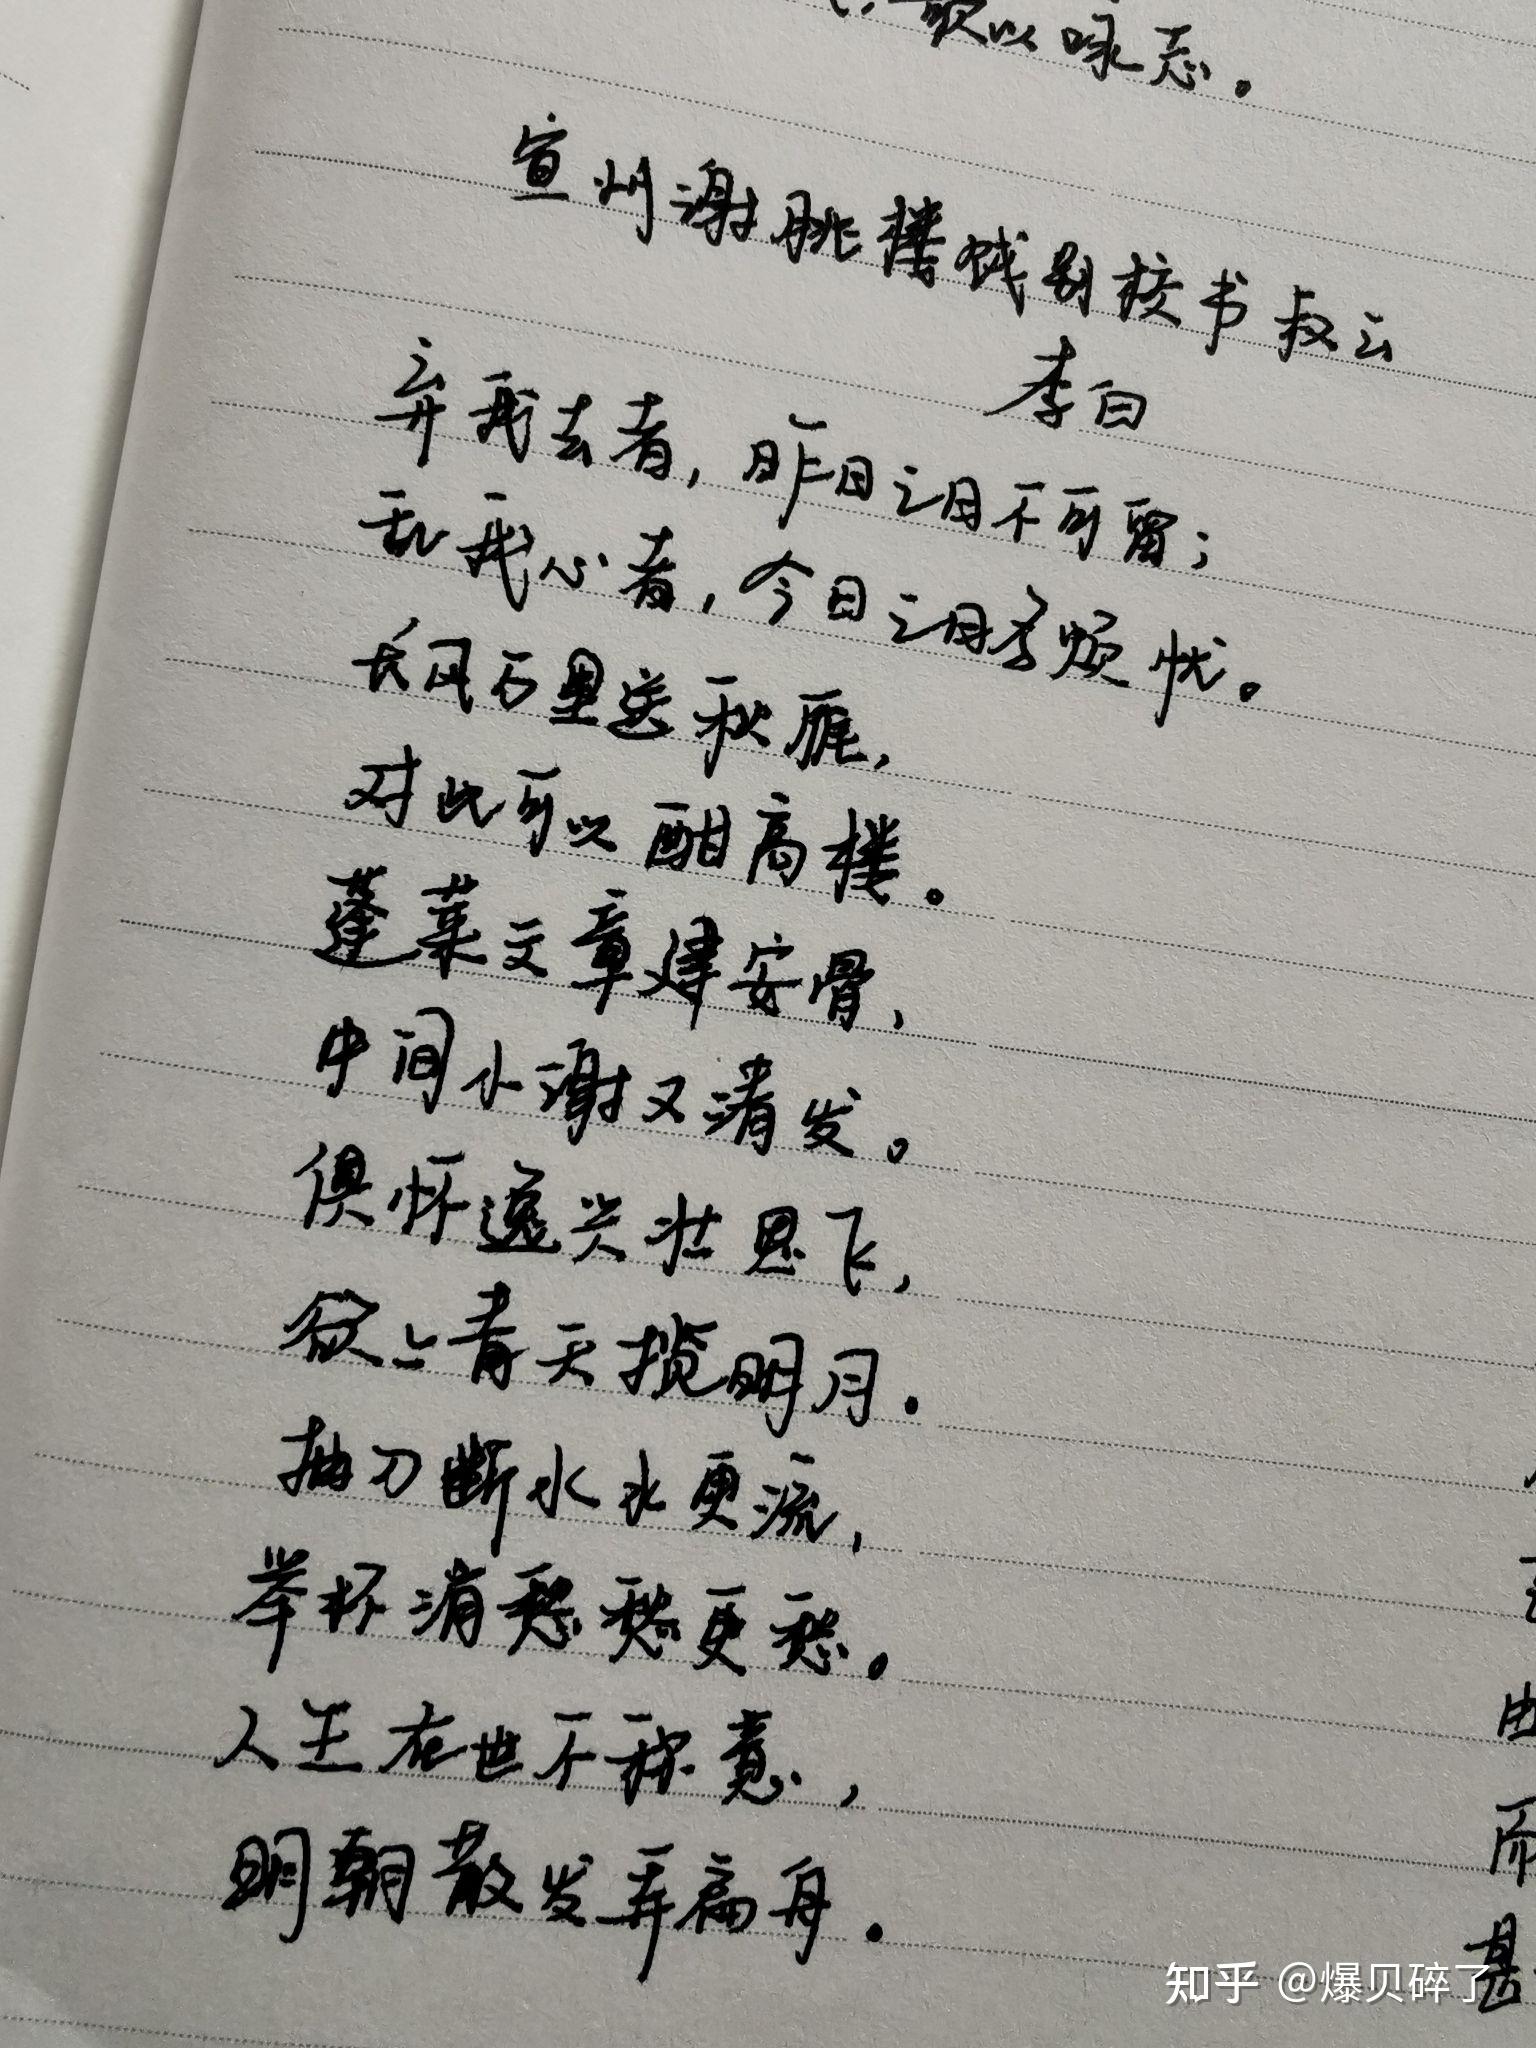 歌以咏志。
宣州谢朓楼饯别校书叔云
李白
弃我去者，昨日之日不可留；
乱我心者，今日之日多烦忧。
长风万里送秋雁，
对此可以酣高楼。
蓬莱文章建安骨，
中间小谢又清发。
俱怀逸兴壮思飞，
欲上青天揽明月.
抽刀断水水更流，
举杯消愁愁更愁。
人生在世不称意，
明朝散发弄扁舟.
而
甚
知乎 @爆贝碎了